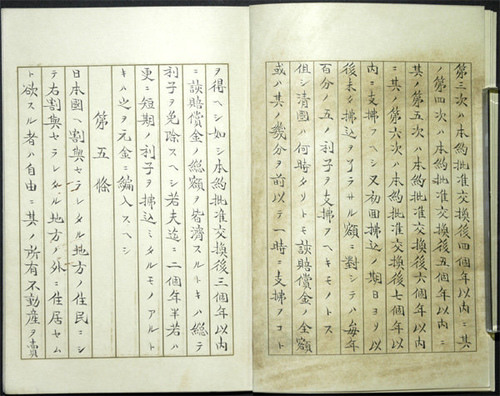 第三次ハ本約批准交換後四個年以内ニ其
ノ第四次ハ本約批准交換後五個年以内ニ
其ノ第五次ハ本約批准交換後六個年以内
ニ其ノ第六次ハ本約批准交換後七個年以
内ニ支拂フヘシ又初回拂込ノ期日ヨリ以
後未タ拂込ヲ了ラサル額ニ對シテハ毎年
百分ノ五ノ利子ヲ支拂フヘキモノトス
但シ清國ハ何時タリトモ該賠償金ノ全額
或ハ其ノ幾分ヲ前以テ一時ニ支拂フコト
ヲ得ヘシ如シ本約批准交換後三個年以内
ニ該賠償金ノ總額ヲ皆濟スルトキハ總テ
利子ヲ免除スヘシ若夫迄ニ二個年半若ハ
更ニ短期ノ利子ヲ拂込ミタルモノアルト
キハ之ヲ元金ニ編入スヘシ
第五條
日本國ヘ割與セラレタル地方ノ住民ニシ
テ右割與セラレタル地方ノ外ニ住居セム
ト欲スル者ハ自由ニ其ノ所有不動産ヲ賣